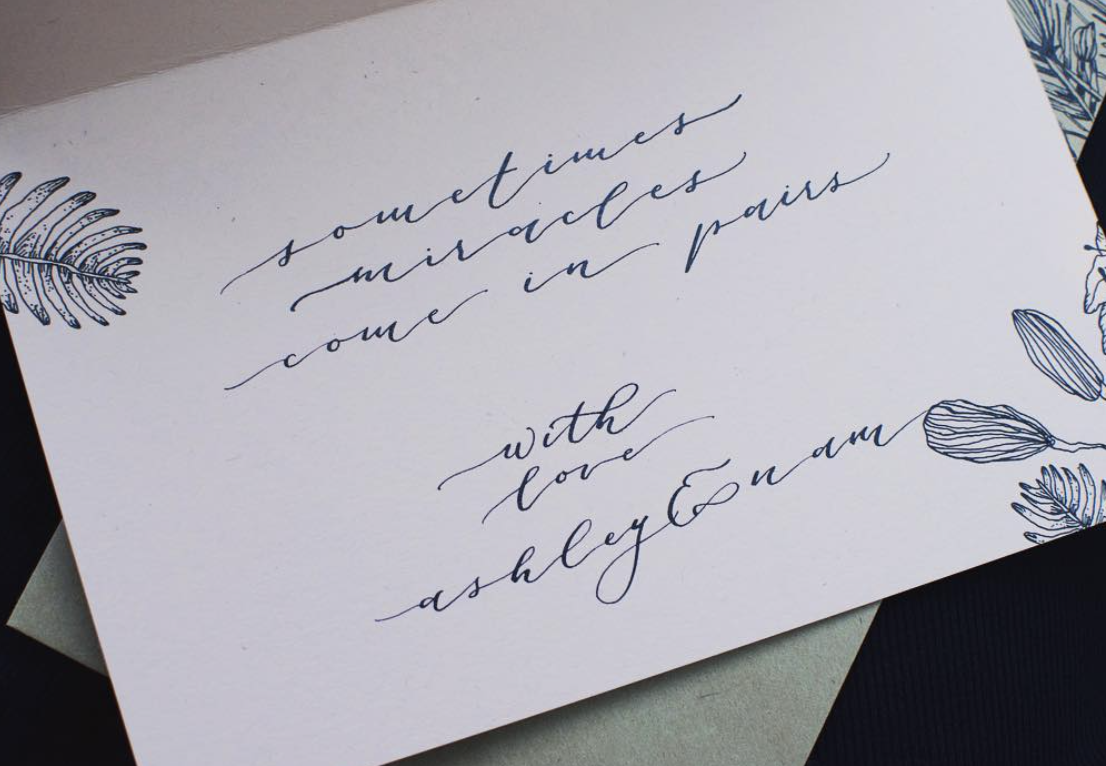 sometimes
miracles
come in pairs
with
love
ashley & nam